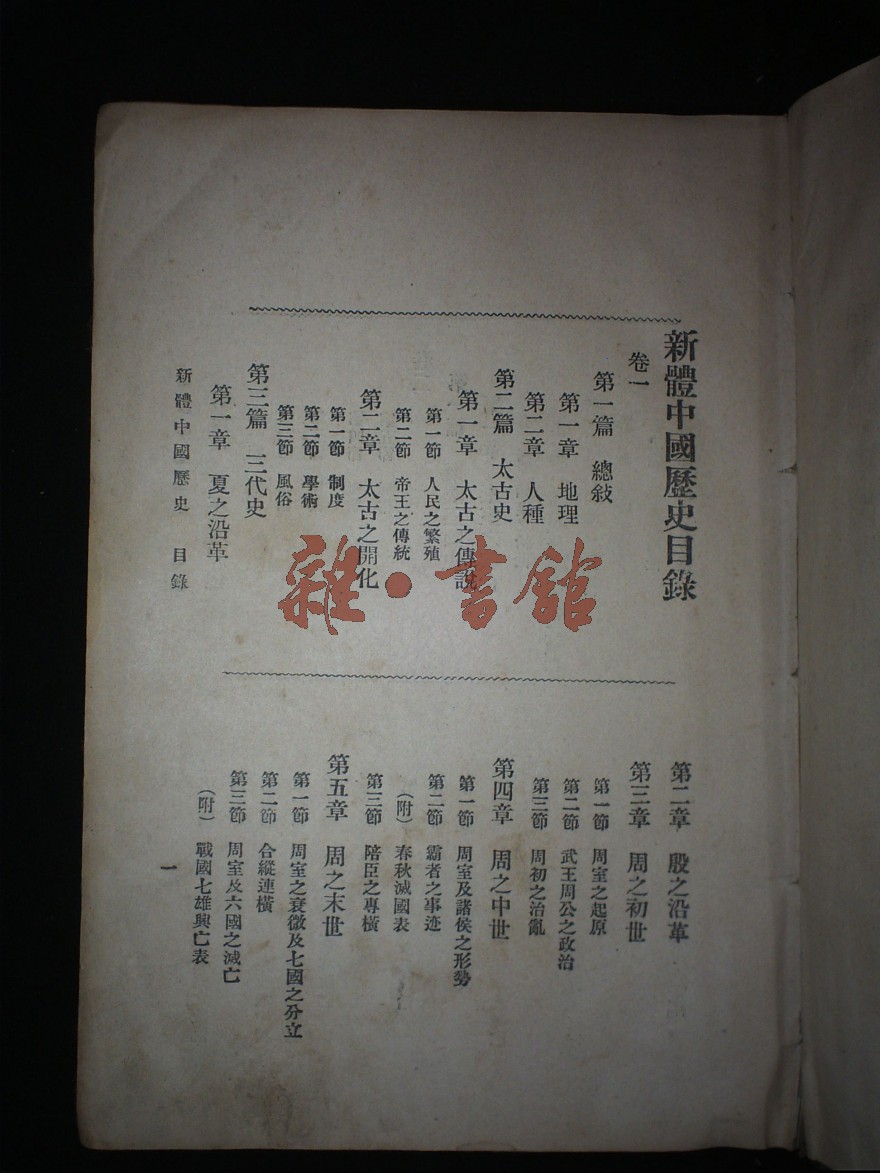 新體中國歷史目錄
卷一
第一篇 總敍
第一章 地理
第二章 人種
第二篇 太古史
第一章 太古之傳說
第一節 人民之繁殖
第二節 帝王之傳統
第二章 太古之開化
第一節 制度
第二節 學術
第三節 風俗
第三篇 三代史
第一章 夏之沿革
第二章 殷之沿革
第三章 周之初世
第一節 周室之起原
第二節 武王周公之政治
第三節 周初之治亂
第四章 周之中世
第一節 周室及諸侯之形勢
第二節 霸者之事迹
（附） 春秋滅國表
第三節 陪臣之專橫
第五章 周之末世
第一節 周室之衰微及七國之分立
第二節 合縱連橫
第三節 周室及六國之滅亡
（附） 戰國七雄興亡表
新體中國歷史 目錄
一
雜·書館